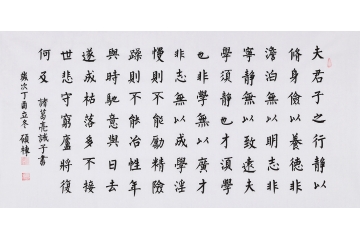 夫君子之行靜以
脩身儉以養德非
澹泊無以明志非
寧靜無以致遠夫
學須靜也才須學
也非學無以廣才
非志無以成學淫
慢則不能勵精險
躁則不能冶性年
與時馳意與日去
遂成枯落多不接
世悲守窮廬將復
何及 諸葛亮誡子書
歲次丁酉立冬